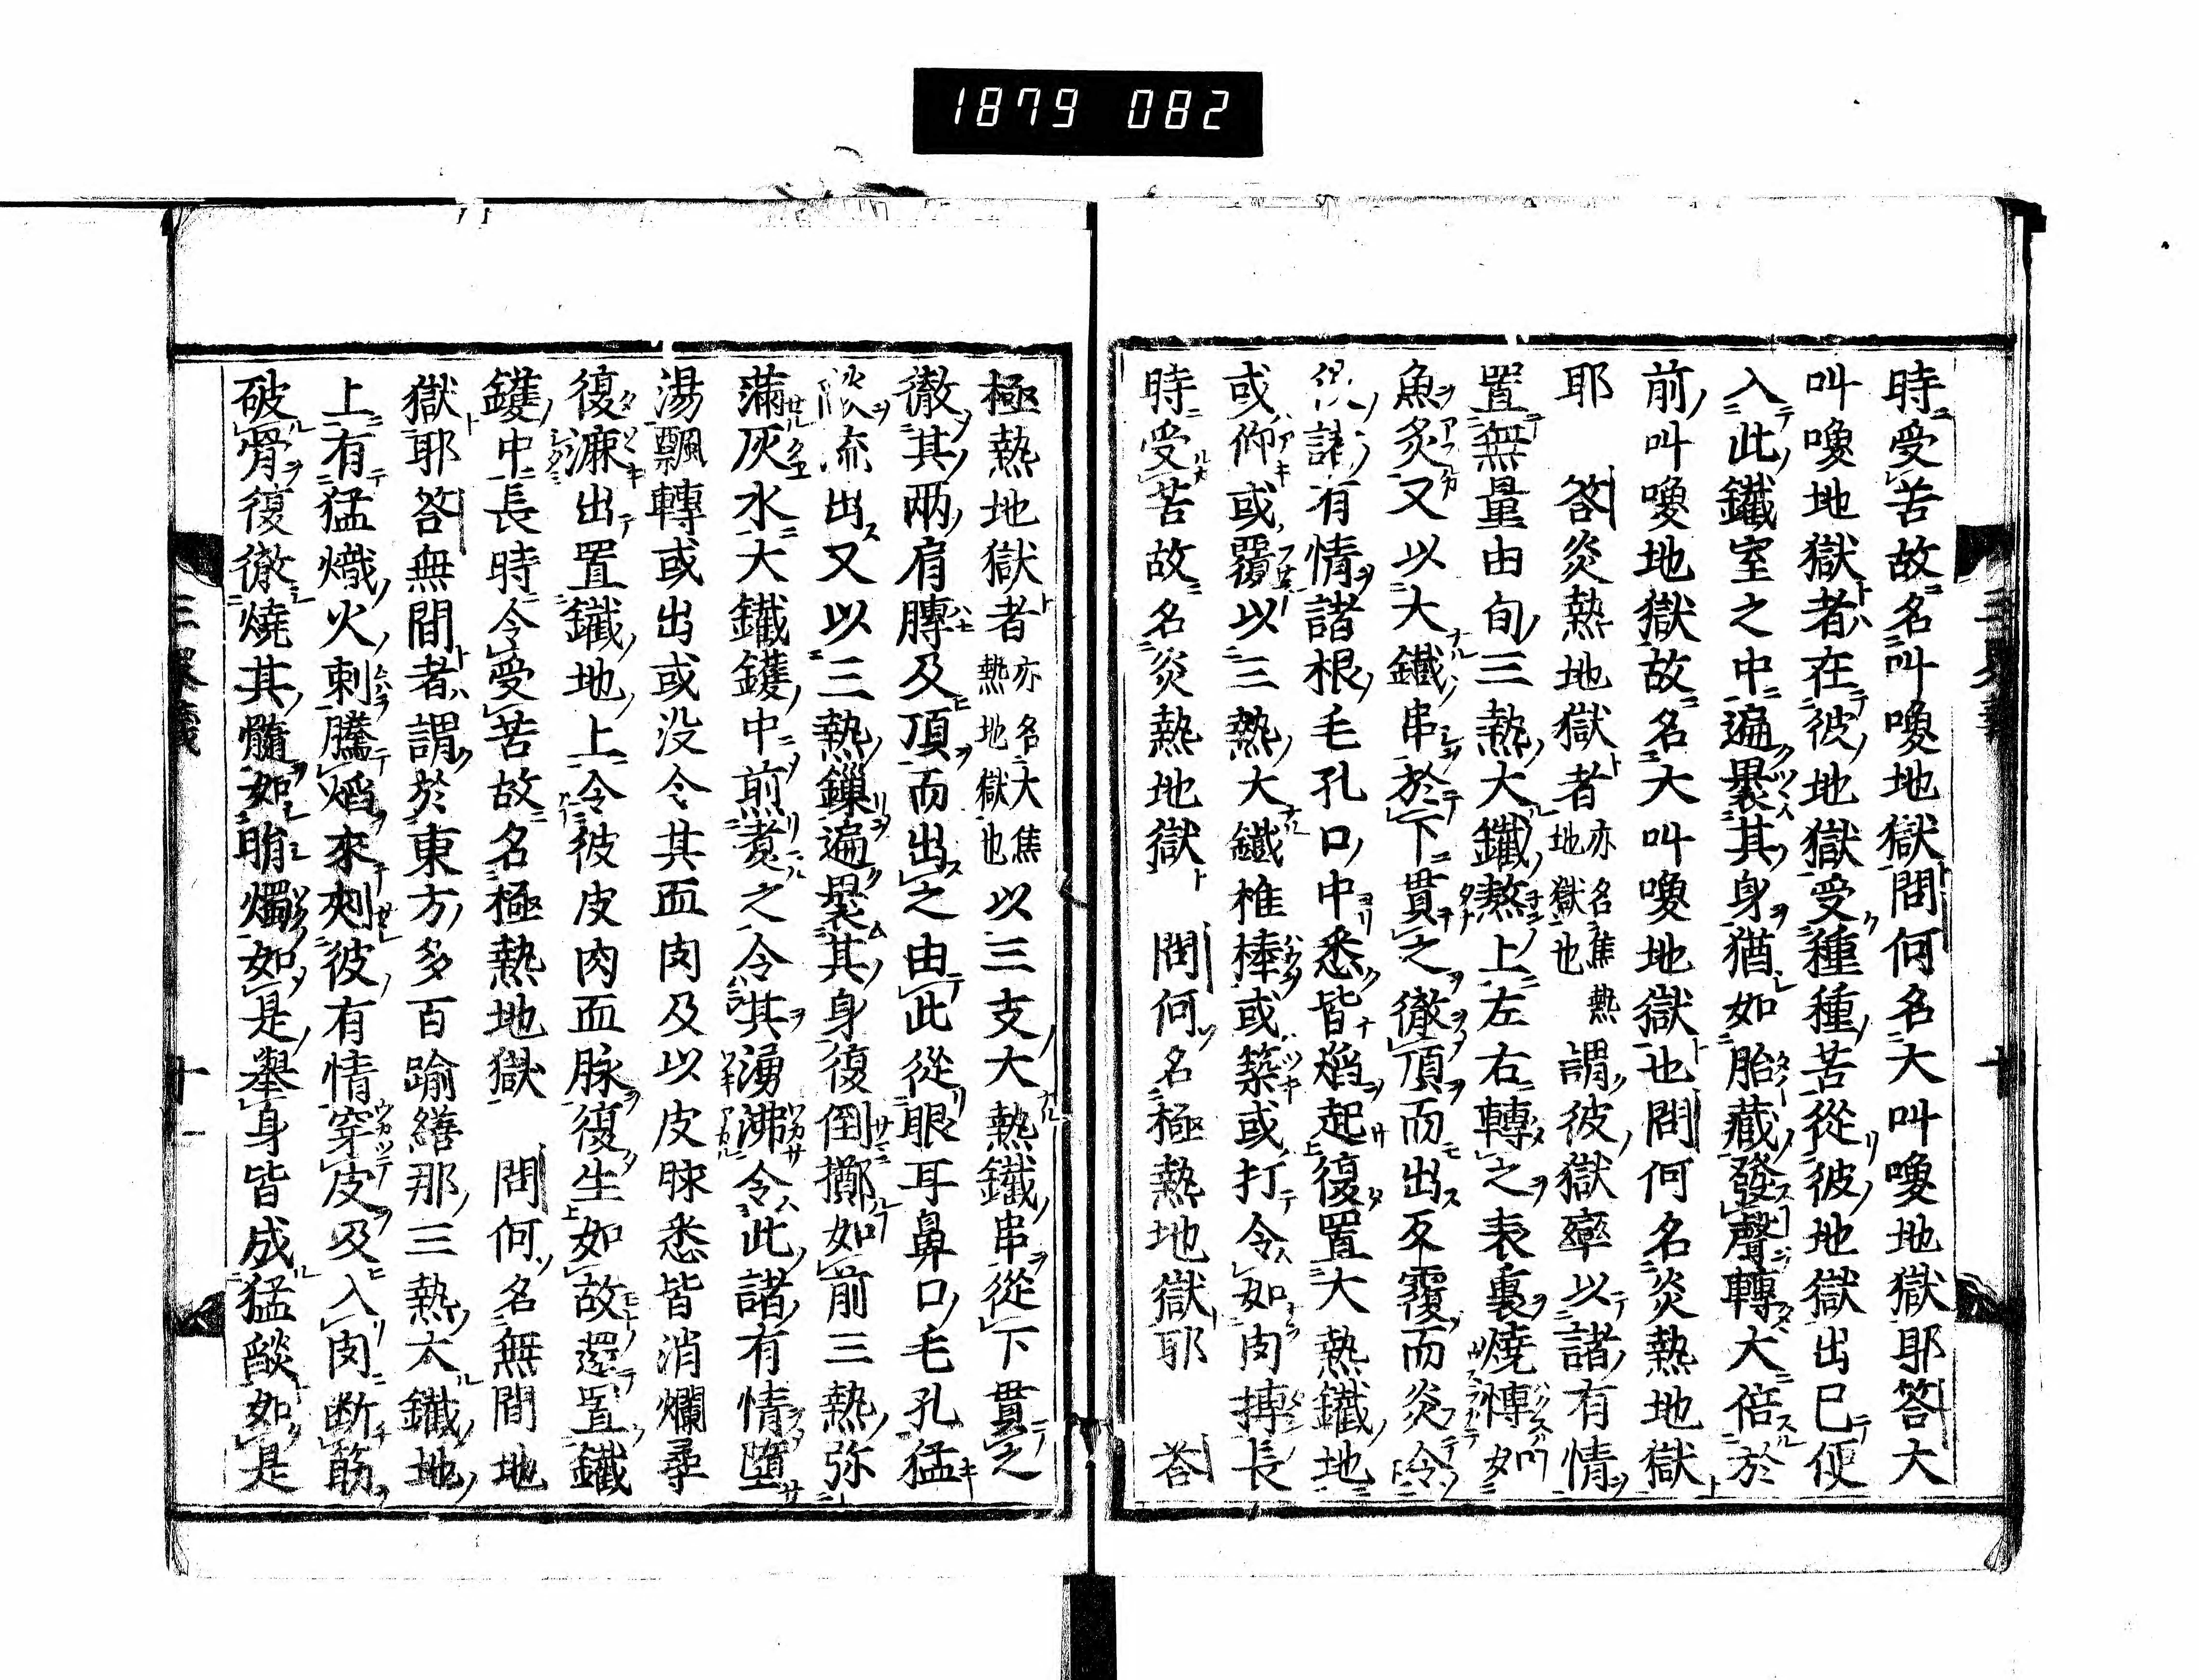 1879 082
時受苦故名叫喚地獄問何名大叫喚地獄耶答大
叫喚地獄者在彼地獄受種種苦從彼地獄出已便
入此鐵室之中遍褁其身猶如胎藏發聲轉大倍於
前叫喚地獄故名大叫喚地獄也問何名炎熱地獄
耶 答炎熱地獄者亦名焦熱地獄也謂彼獄卒以諸有情
置無量由旬三熱大鐵熬上左右轉之表裏燒慱如
魚炙又以大鐵串於下貫之徹頂而出反覆而炎令
諸有情諸根毛孔口中悉皆焰起復置大熱鐵地
或仰或覆以三熱大鐵椎棒或築或打令如肉摶長
時受苦故名炎熱地獄 問何名極熱地獄耶 答
極熱地獄者亦名大焦熱地獄也以三支大熱鐵串從下貫之
徹其兩肩膊及頂而出之由此從眼耳鼻口毛孔猛
流出又以三熱鐵鍱遍褁其身復倒擲如前三熱弥
滿灰水大鐵鑊中煎煮之令其湧沸令此諸有情墮
湯飄轉或出或没令其血肉及以皮脉悉皆消爛尋
復漉出置鐵地上令彼皮肉血脉復生如故還置鐵
鑊中長時令受苦故名極熱地獄 問何名無間地
獄耶答無間者謂於東方多百踰繕那三熱大鐵地
上有猛熾火刺騰焰來刺彼有情穿皮及入肉断筋
破骨復徹燒其髓如脂燭如是舉身皆成猛燄如是
三界義
十一